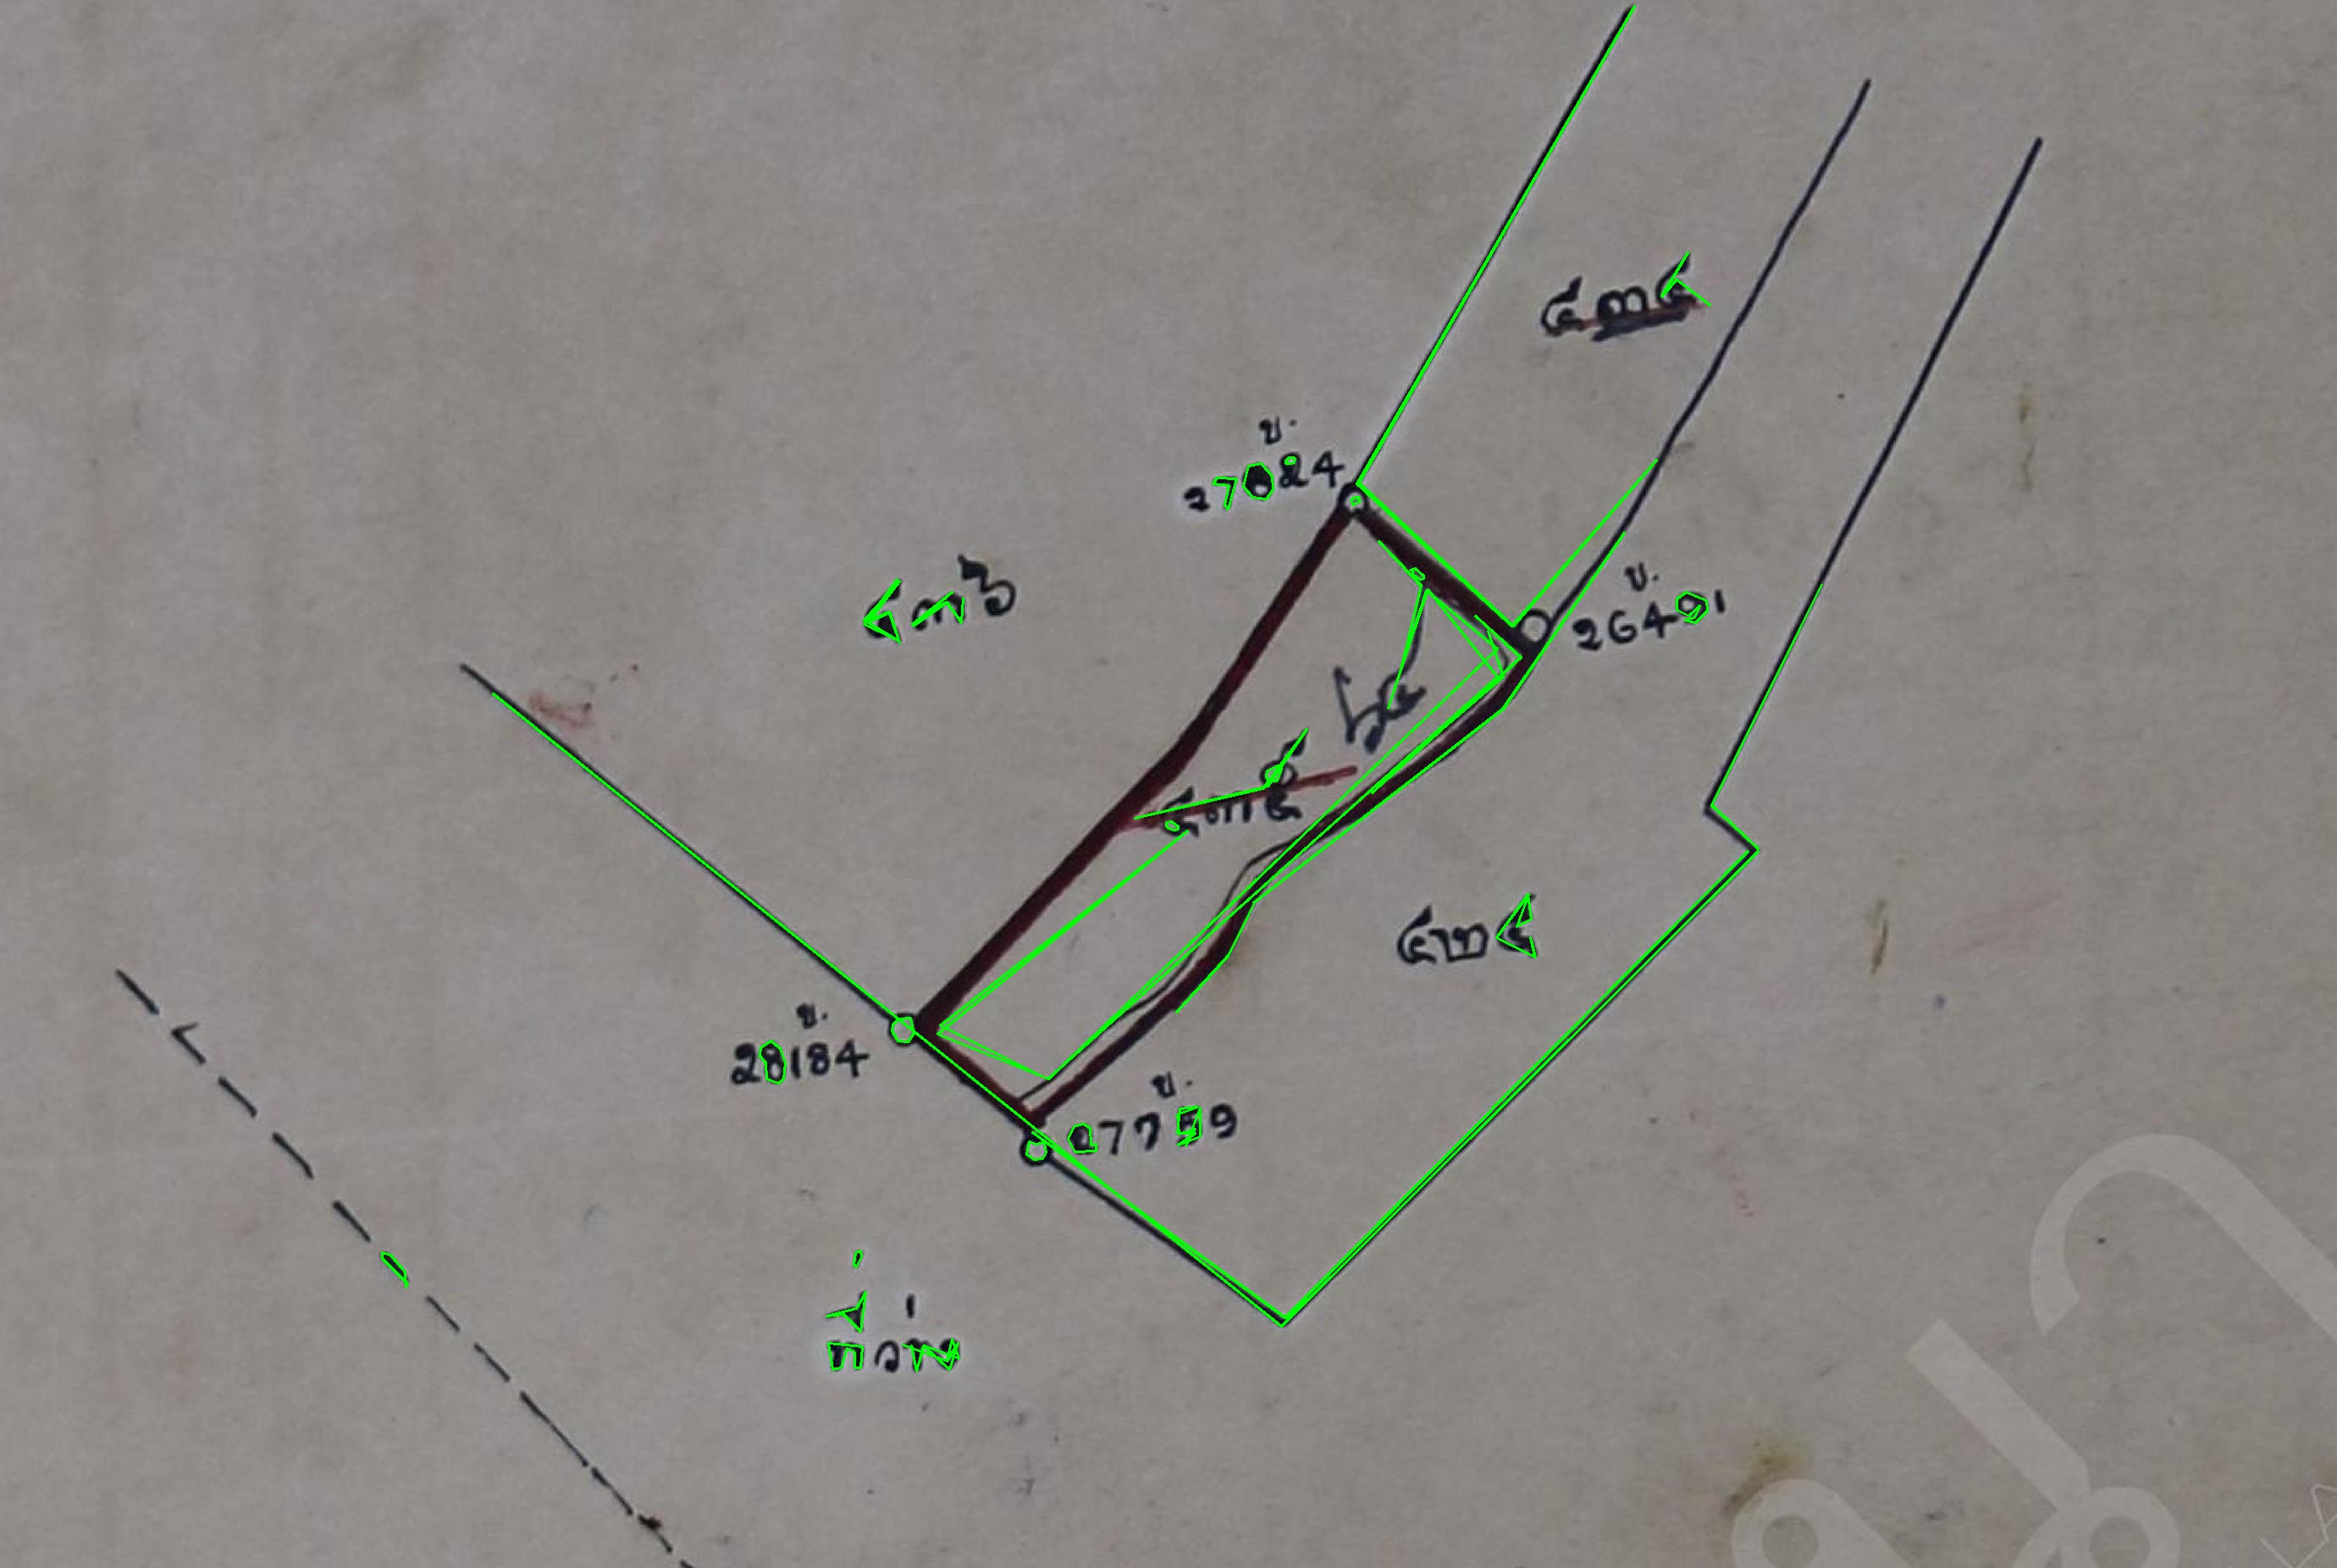 ๔๓๔
ข.
27024
ข.
26491
๔๓๖
๖๔
๔๓๕
๔๒๔
ข.
28184
ข.
27759
ที่ว่าง